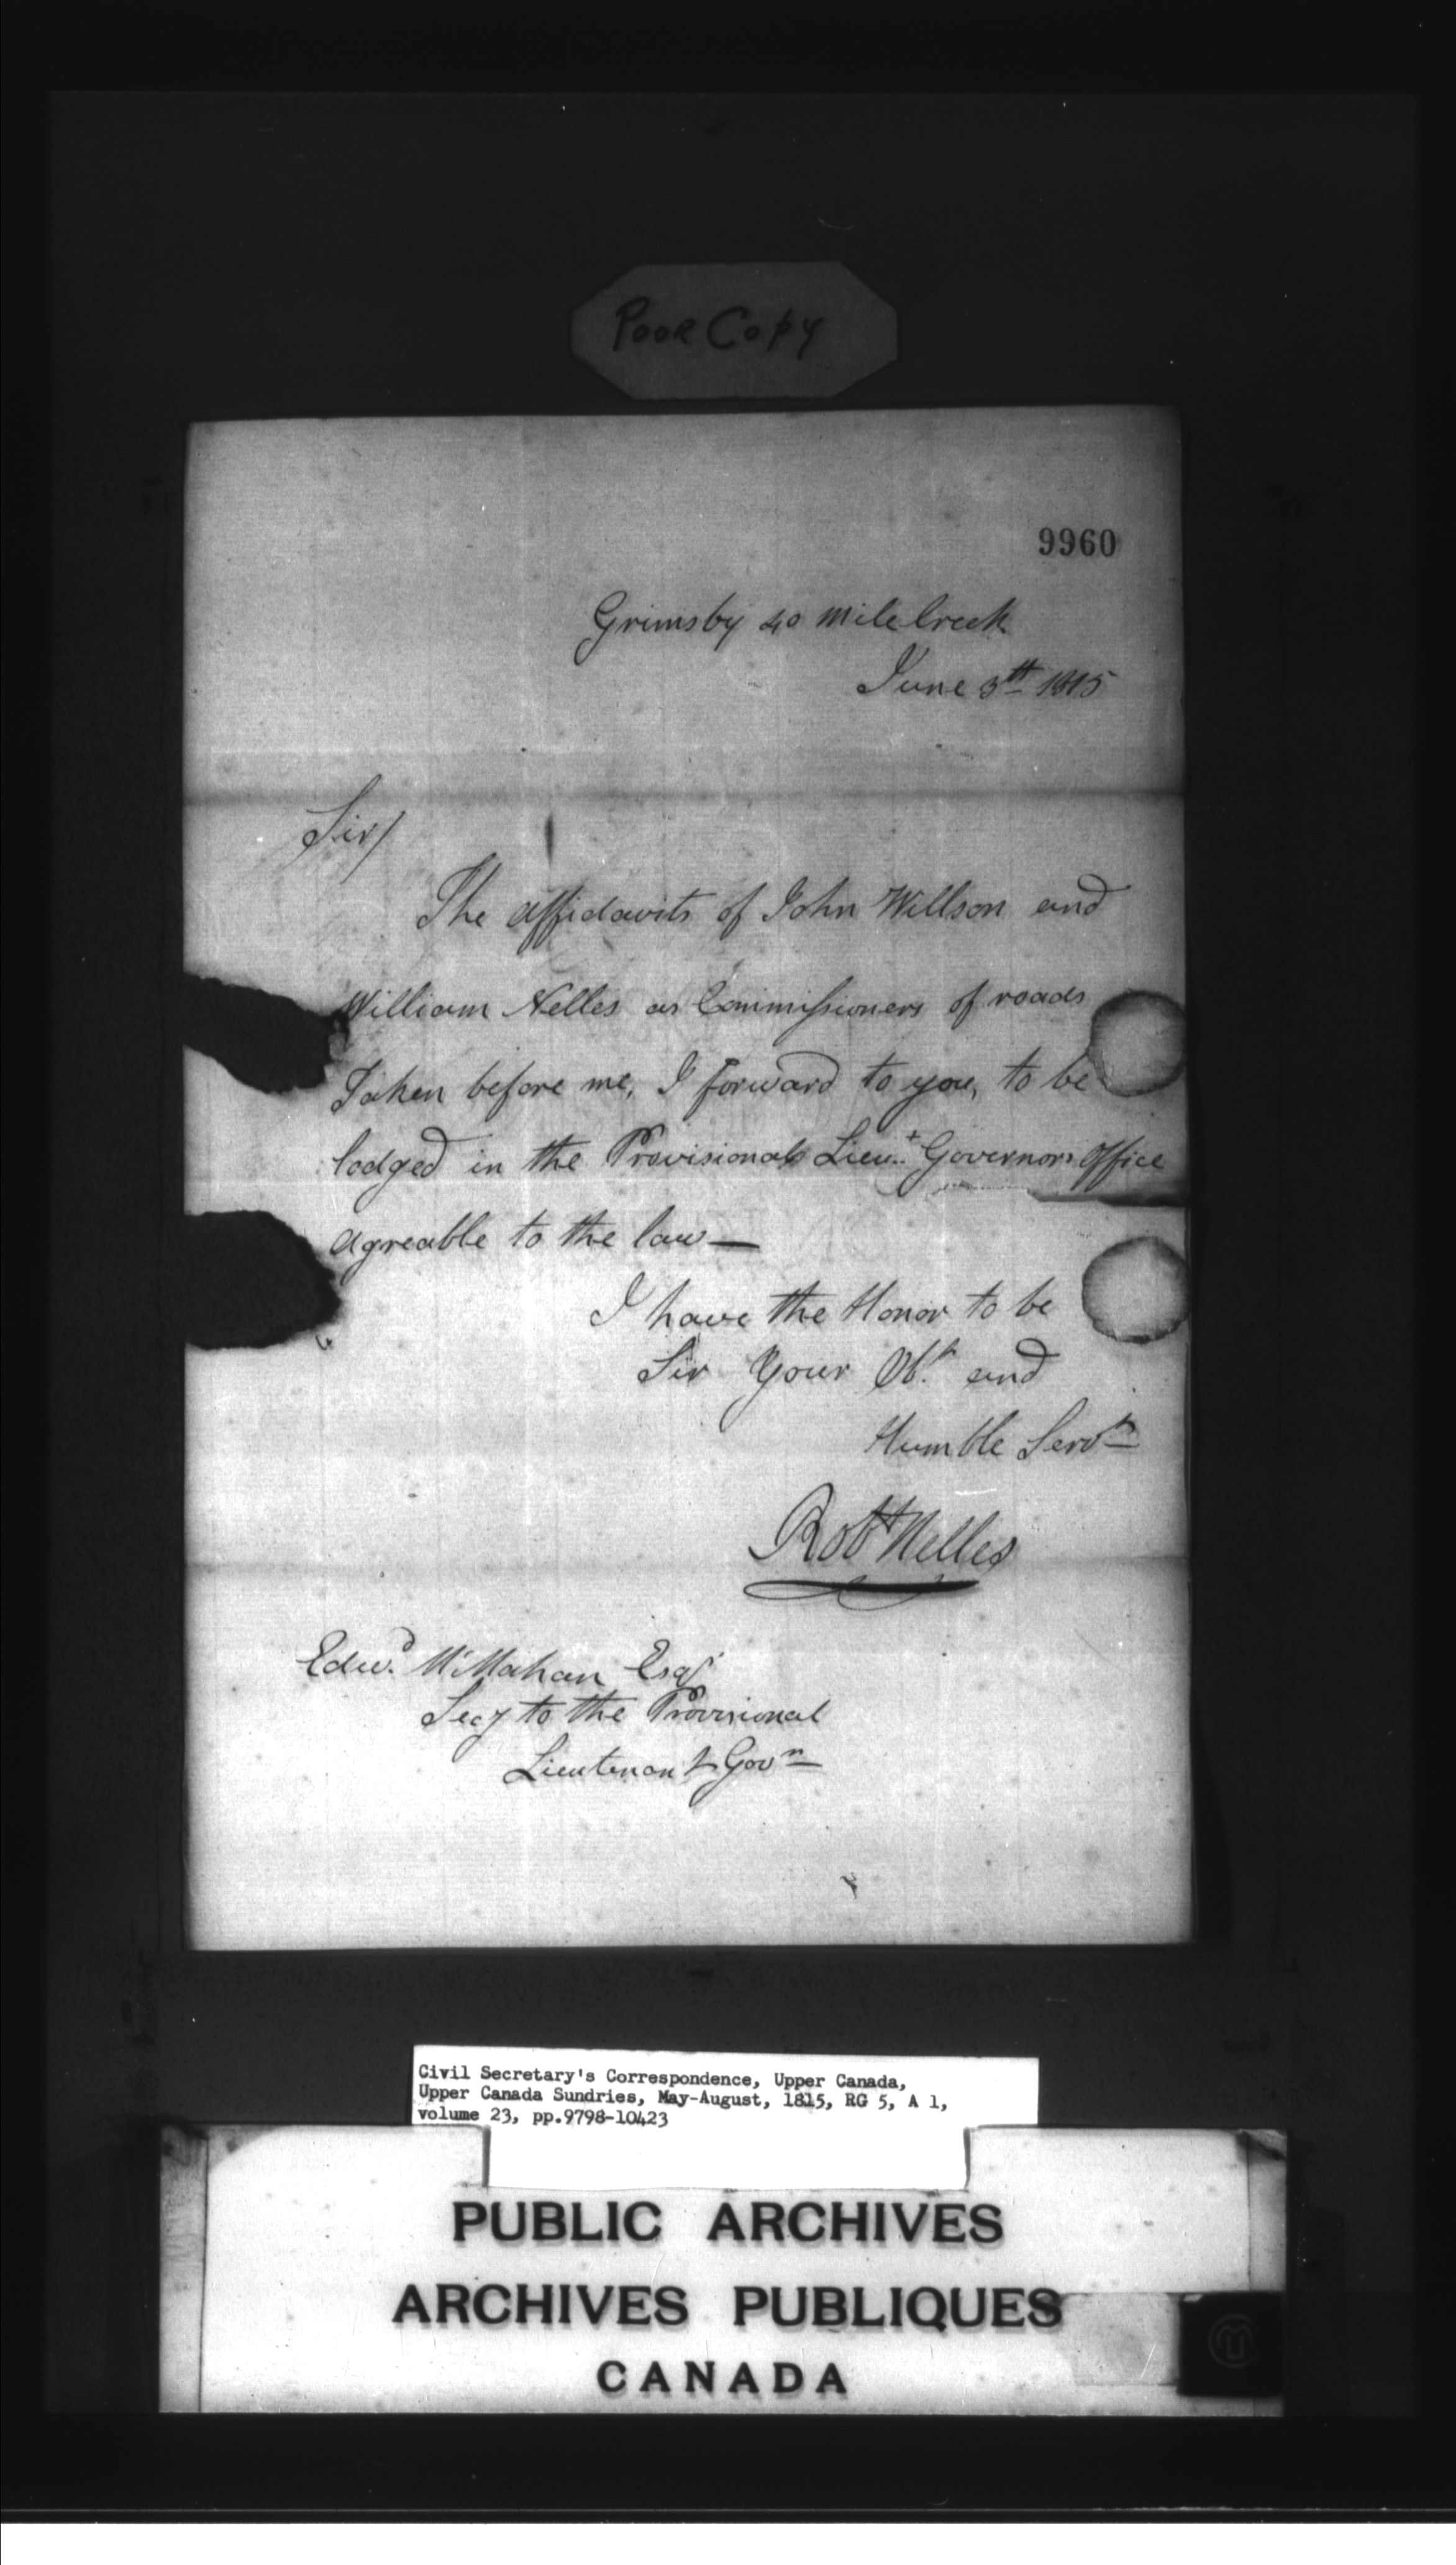 Poor Copy
9960
Grimsby 40 Mile Creek
June 3th 1815
Sir/
The affidavits of John Willson and
William Nelles as Commissioners of roads
Taken before me, I forward to you, to be
lodged in the Provisional Lieut. Governors Office
agreable to the law—
I have the Honor to be
Sir Your Obt. and
Humble Servt
Robt Nelles
Edwd. McMahan Esqr
Secy to the Provisional
Lieutenant Govn
Civil Secretary's Correspondence, Upper Canada,
Upper Canada Sundries, May-August, 1815, RG 5, A 1,
volume 23, pp.9798-10423
PUBLIC ARCHIVES
ARCHIVES PUBLIQUES
CANADA